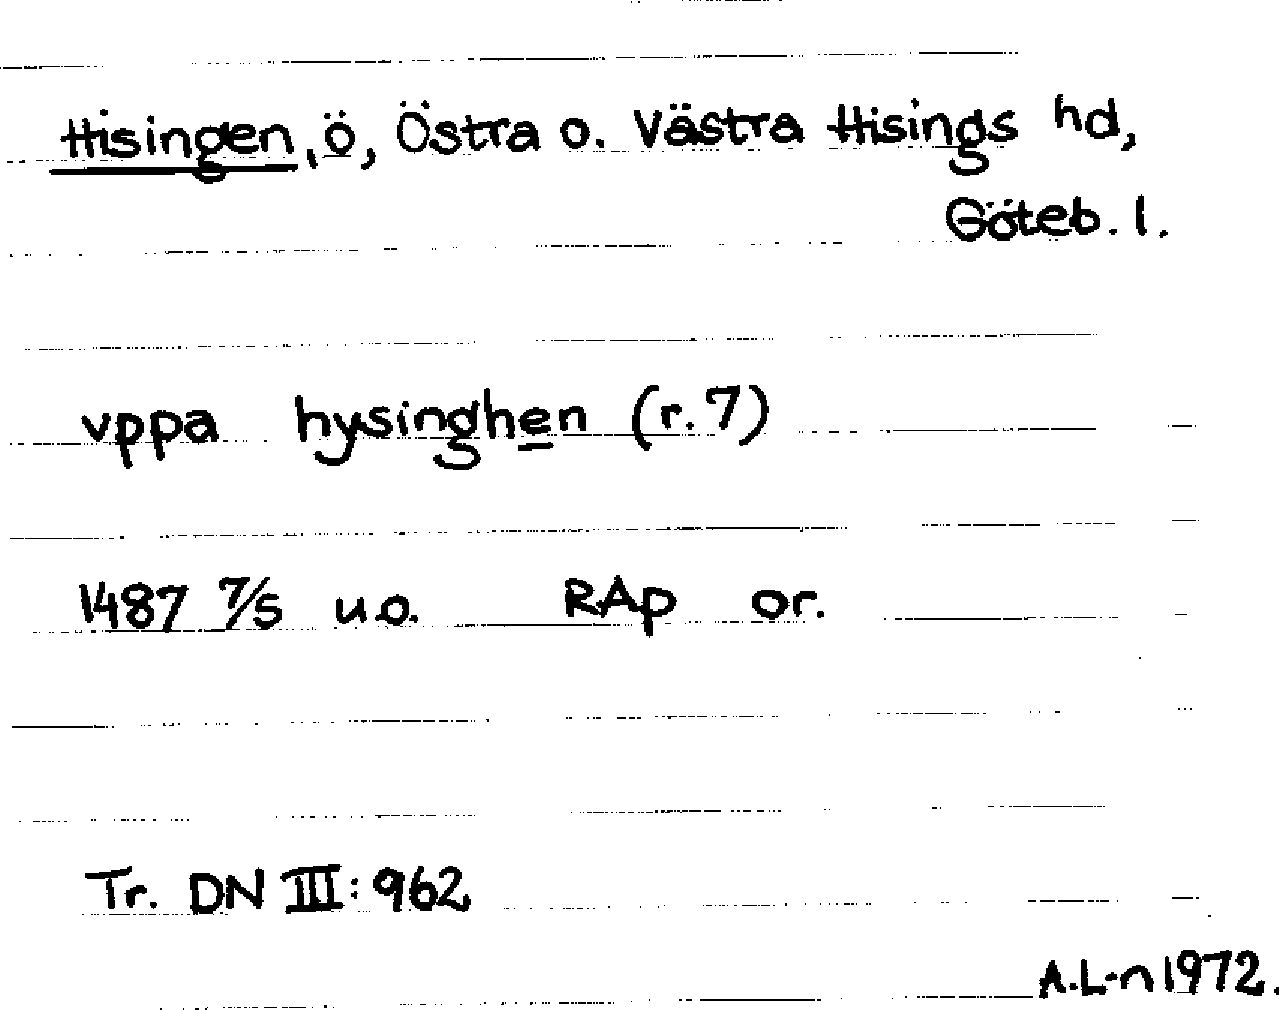 Hisingen, ö, Östra o. Västra Hisings hd,
Göteb. l.
vppa hysinghen (r. 7)
1487 7/5 u.o. RAp or.
Tr. DN III: 962
A.L-n 1972.